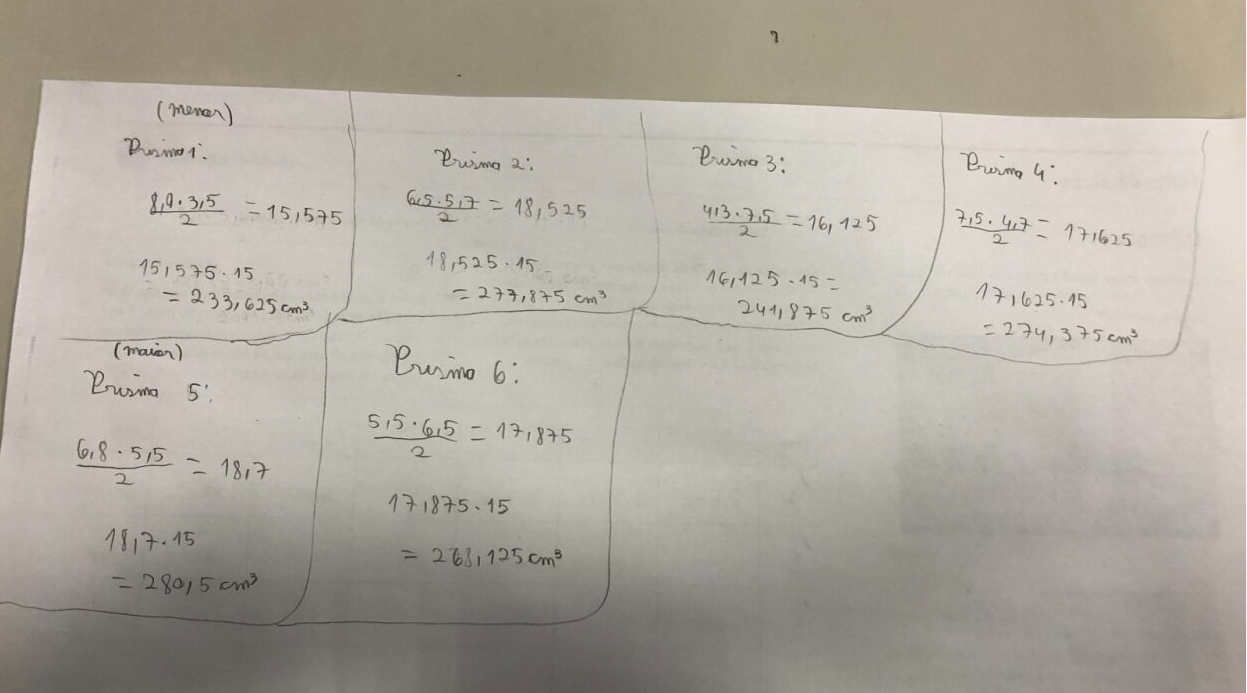 (menor)
Prisma 1:
8,9 · 3,5 / 2 = 15,575
15,575 · 15
= 233,625 cm³
Prisma 2:
6,5 · 5,7 / 2 = 18,525
18,525 · 15 =
= 277,875 cm³
Prisma 3:
4,3 · 7,5 / 2 = 16,125
16,125 · 15 =
241,875 cm³
Prisma 4:
7,5 · 4,7 / 2 = 17,625
17,625 · 15
= 274,375 cm³
(maior)
Prisma 5:
6,8 · 5,5 / 2 = 18,7
18,7 · 15
= 280,5 cm³
Prisma 6:
5,5 · 6,5 / 2 = 17,875
17,875 · 15
= 268,125 cm³